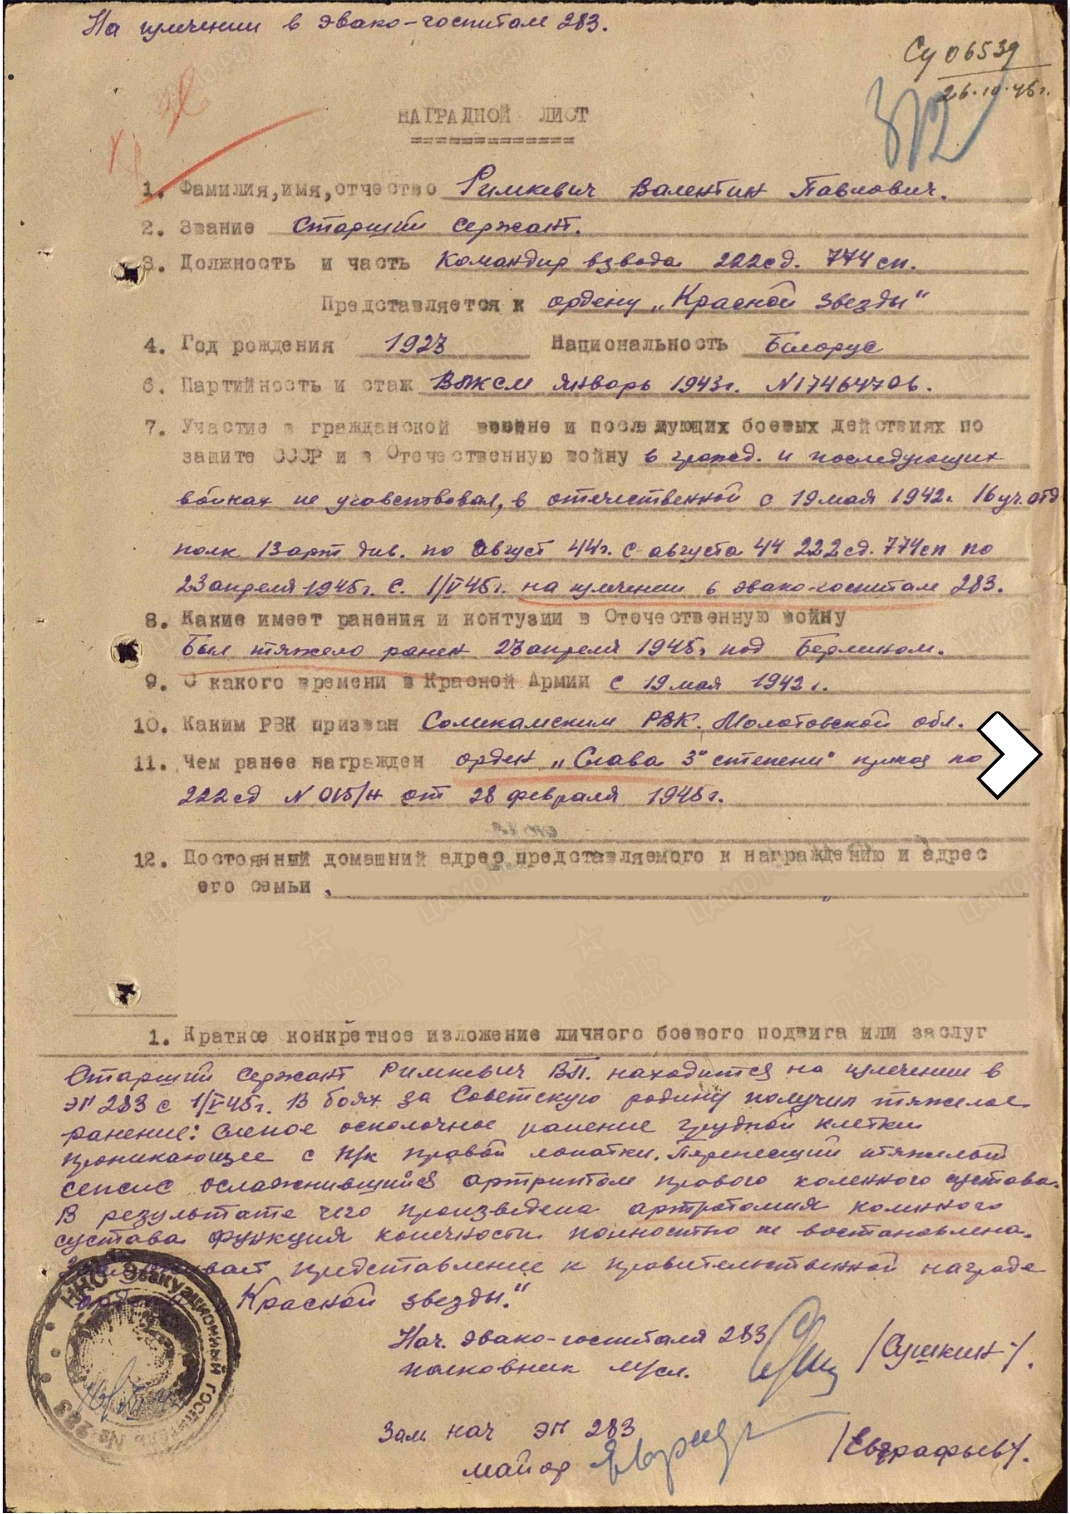 На излечении в эвако-госпитале 283.
Су 06539
26.10.45г.
НАГРАДНОЙ ЛИСТ
1. Фамилия,имя,отчество Римкевич Валентин Павлович.
2. Звание Старший сержант.
3. Должность и часть Командир взвода 222сд. 774сп.
Представляется к ордену „Красной звезды"
4. Год рождения 1923 Национальность Білорус
6. Партийность и стаж ВЛКСМ январь 1943г. N17464706.
7. Участие в гражданской войне и последующих боевых действиях по
защите СССР и в Отечественную войну в гражд. и последующих
войнах не учавствовал, в отечественной с 19 мая 1942г. 16 уч. отд
полк 13 арт див. по август 44г. с августа 44 222сд. 774сп по
23 апреля 1945г. С. 1/V 45г. на излечении в эвако-госпитале 283.
8. Какие имеет ранения и контузии в Отечественную войну
Был тяжело ранен 23 апреля 1945г под Берлином.
9. С какого времени в Красной Армии с 19 мая 1942г.
10. Каким РВК призван Соликамским РВК. Молотовской обл.
11. Чем ранее награжден орден „Слава 3й степени" приказ по
222сд N 015/н от 28 февраля 1945г.
12. Постоянный домашний адрес представляемого к награждению и адрес
его семьи
1. Краткое конкретное изложение личного боевого подвига или заслуг
Старший сержант Римкевич В.П. находится на излечении в
ЭГ 283 с 1/V-45г. В боях за Советскую родину получил тяжелое
ранение: слепое осколочное ранение грудной клетки
проникающее с п/к правой лопатки. Перенесший тяжелый
сепсис осложнившийся артритом правого коленного сустава.
В результате чего произведена артротомия коленного
сустава функция конечности полностью не востановлена.
представление к правительственной награде
Красной звезды."
Нач. эвако-госпиталя 283
полковник м/сл. /Сушкин/.
Зам нач ЭГ 283
майор /Евграфьев/.
НКО Эвакуационный госпиталь № 283